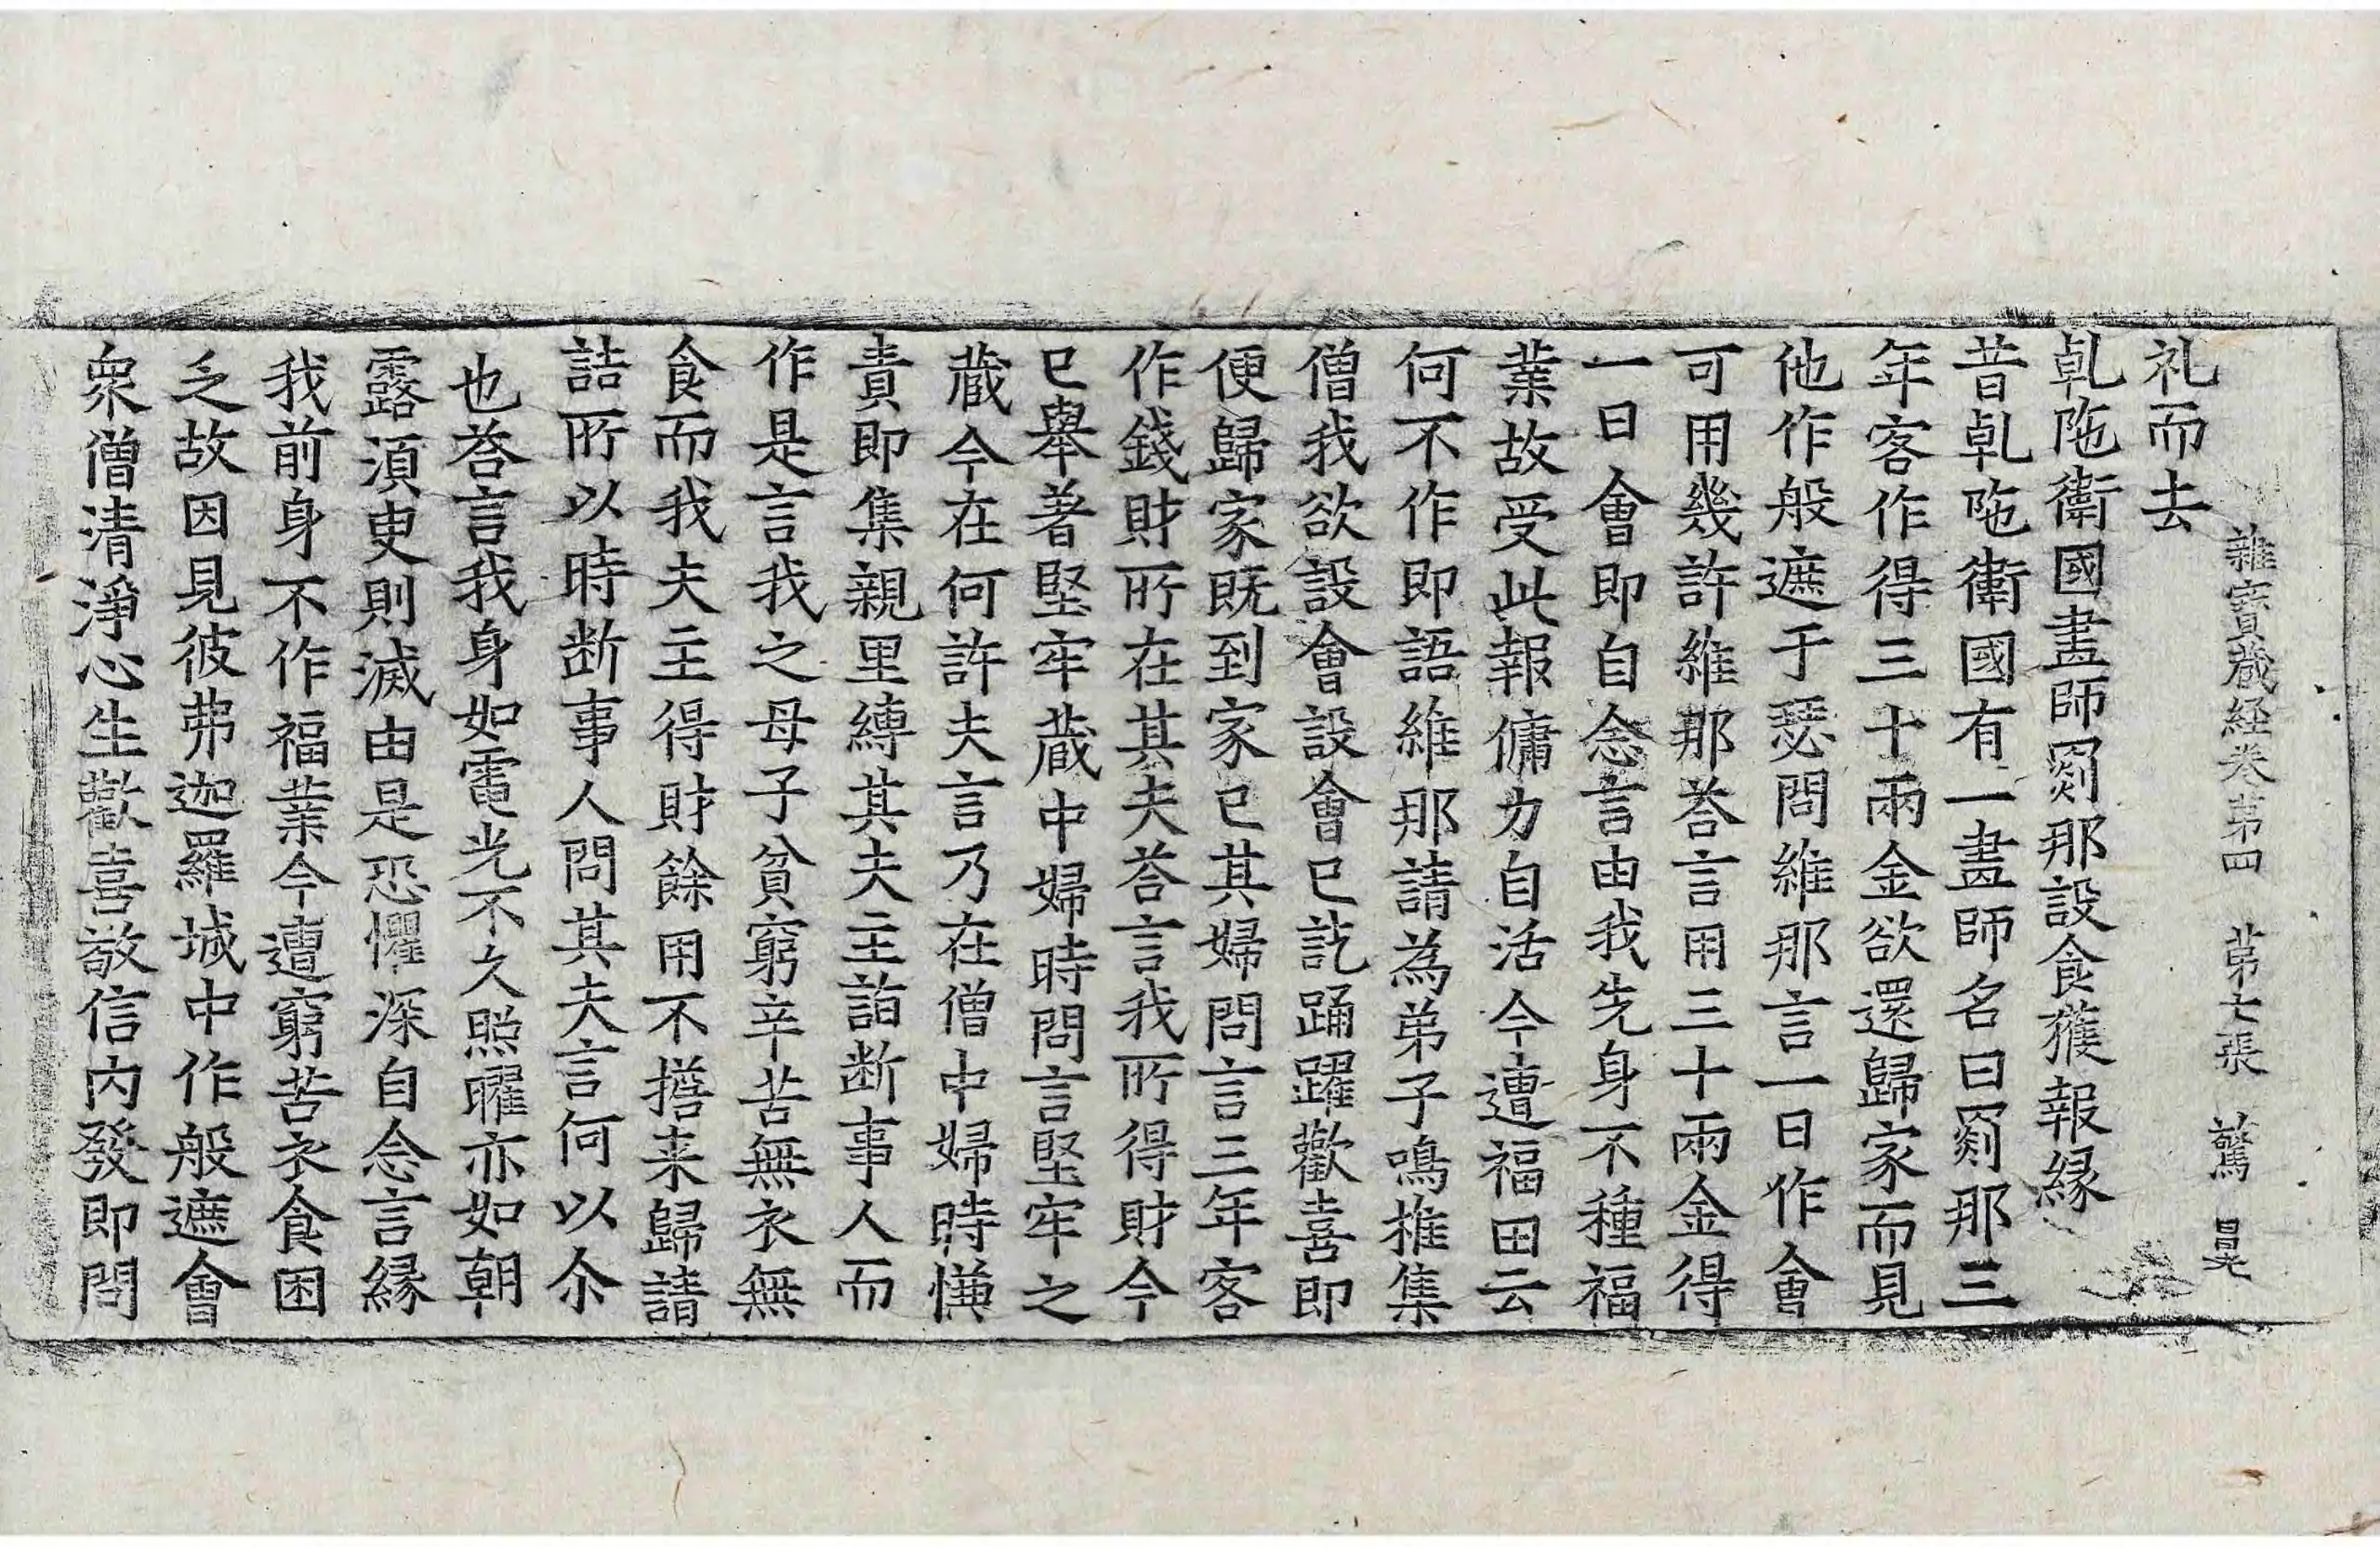 雜寶蔵経巻第四　苐七張　驚　晃
礼而去
乹陁衛國畫師罽那設食獲報縁
昔乹陁衛國有一畫師名曰罽那三
年客作得三十兩金欲還歸家而見
他作般遮于瑟問維那言一日作會
可用幾許維那荅言用三十兩金得
一日會即自念言由我先身不種福
業故受此報傭力自活今遭福田云
何不作即語維那請為弟子鳴推集
僧我欲設會設會已訖踊躍歡喜即
便歸家既到家已其婦問言三年客
作錢財所在其夫荅言我所得財今
已舉著堅牢蔵中婦時問言堅牢之
蔵今在何許夫言乃在僧中婦時慊
責即集親里縛其夫主詣断事人而
作是言我之母子貧窮辛苦無衣無
食而我夫主得財餘用不擔来歸請
詰所以時断事人問其夫言何以尒
也荅言我身如電光不久照曜亦如朝
露湏臾則滅由是恐懼深自念言縁
我前身不作福業今遭窮苦衣食困
乏故因見彼弗迦羅城中作般遮會
衆僧清淨心生歡喜敬信内發即問